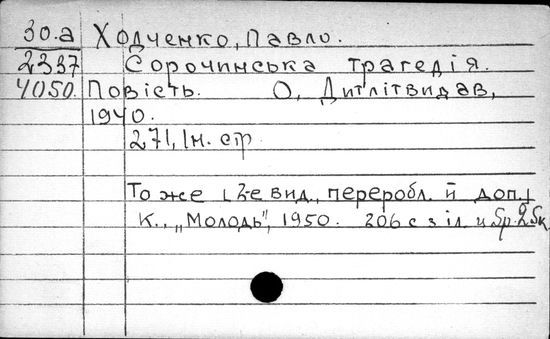 30.а Ходченко, Павло.
2337 Сорочинська трагедія.
4050. Повість. О, Дитлітвидав,
1940.
271, 1н. стр.
То же [2-е вид., переробл. й доп.]
К., „Молодь", 1950. 206 с з іл.